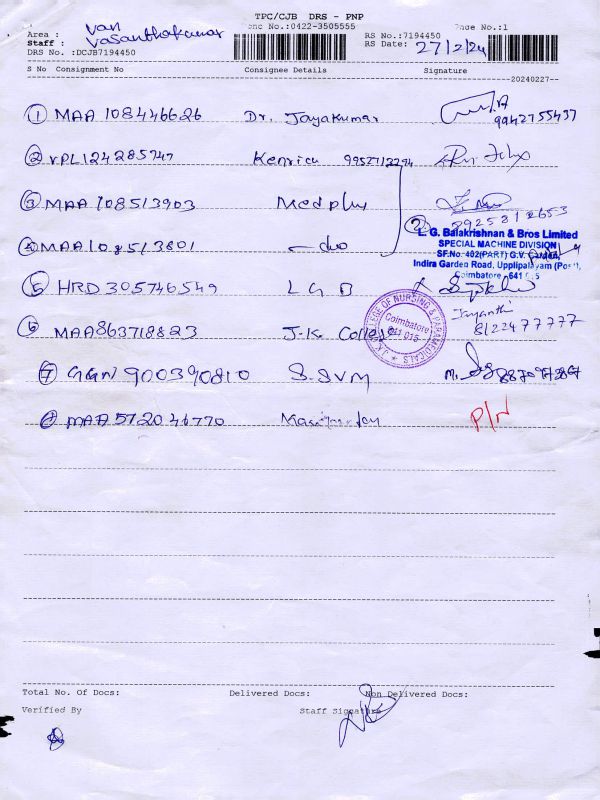 TPC/CJB DRS - PNP
Area : van
Phone No.:0422-3505555
Page No.:1
Staff : Vasanthakumar
RS No.:7194450
RS Date: 27/2/24
DRS No. :DCJB7194450
S No Consignment No Consignee Details Signature
20240227
1 MAA 108446626 Dr. Jayakumar 9942755437
2 VPL124285747 Kenrich 9952712294
3 MAA 108513903 Medplus
2 8925812653
4 MAA108513801 -do
L.G. Balakrishnan & Bros Limited
SPECIAL MACHINE DIVISION
SF.No. 402(PART) G.V. Garden,
Indira Garden Road, Upplipalayam (Post),
Coimbatore - 641 015
5 HRD 305746549 L G B
6 MAA863718823 J.K. College Jayanthi
8122477777
J.K. COLLEGE OF NURSING & PARAMEDICALS
Coimbatore
641 015
7 GGN 900390810 S.SVM
8 MAA 572046770 P/N
Total No. Of Docs: Delivered Docs: Non Delivered Docs:
Verified By Staff Signature